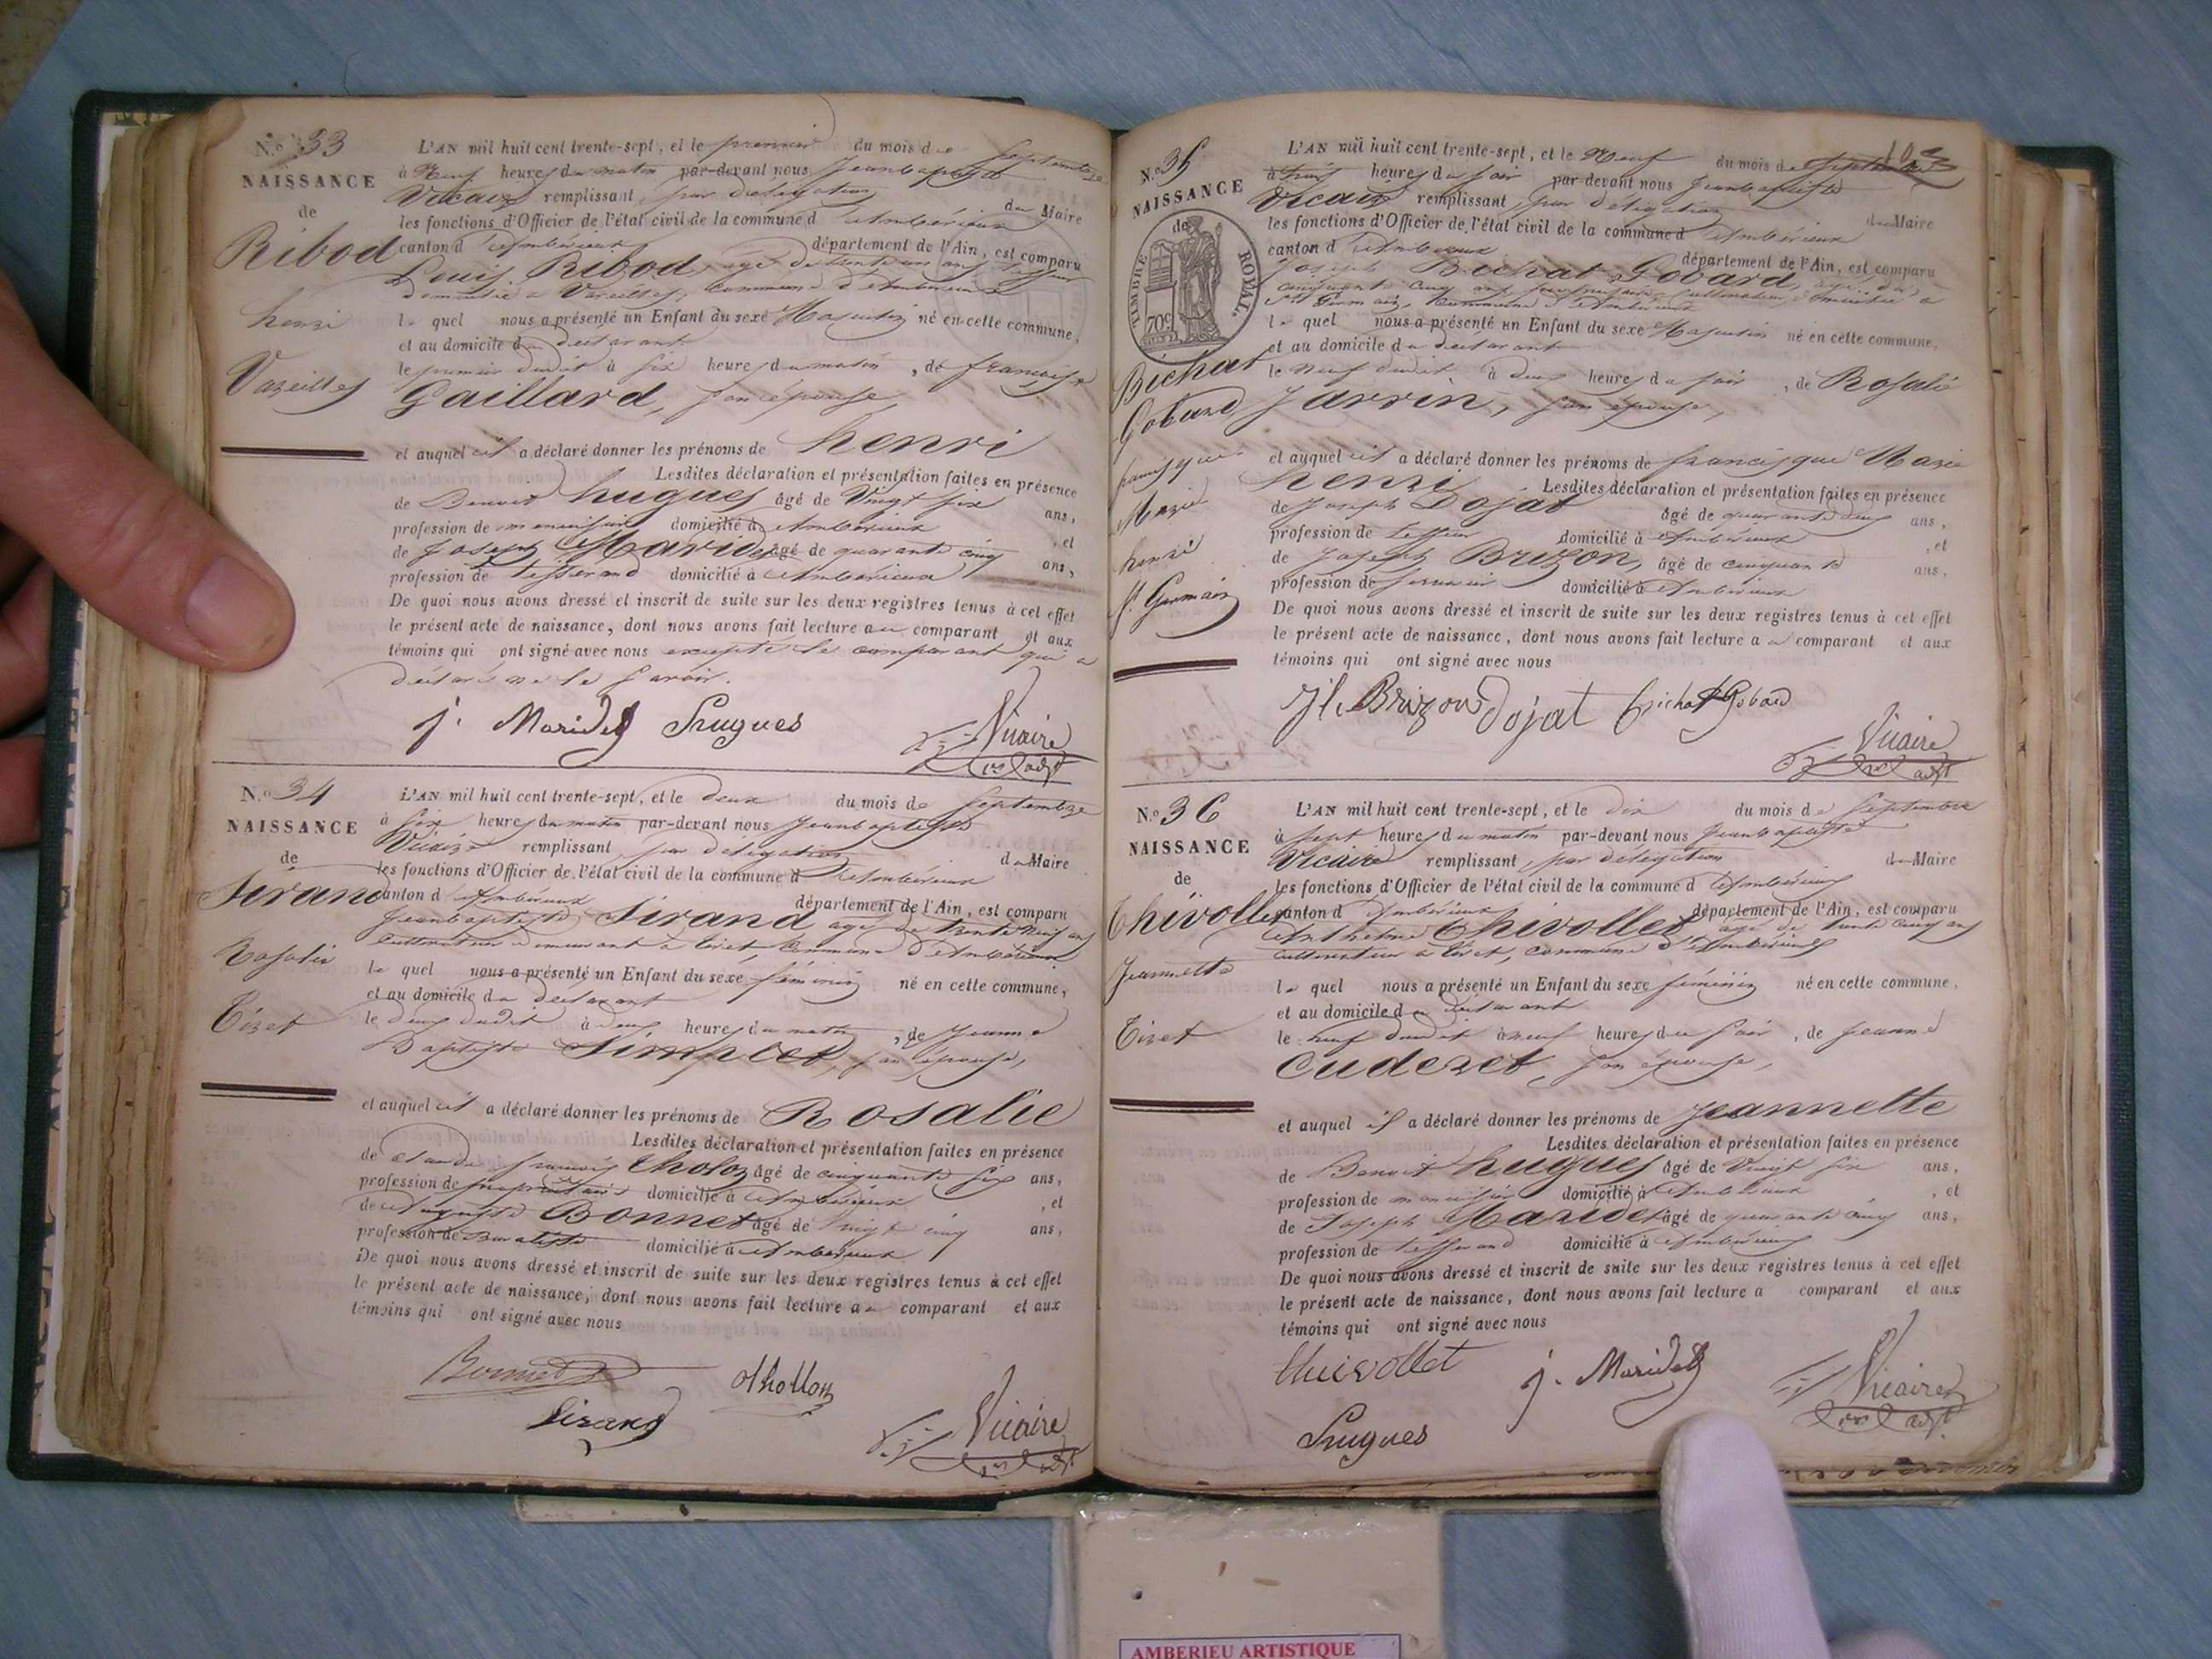 N.o 33
NAISSANCE
de
Ribod
henri
Vareilles
L'AN mil huit cent trente-sept, et le premier du mois de Septembre
à Neuf heures du matin par-devant nous Jeanbaptiste
Vicaire remplissant, par délégation du Maire
les fonctions d'Officier de l'état civil de la commune d'Ambérieux
canton d'Ambérieux département de l'Ain, est comparu
Louis Ribod, agé de trente un ans,
domicilié à Vareilles, commune d'Ambérieux
le quel nous a présenté un Enfant du sexe Masculin né en cette commune,
et au domicile du déclarant
le premier dudit à six heures du matin, de françoise
Gaillard, son épouse,
et auquel il a déclaré donner les prénoms de henri
Lesdites déclaration et présentation faites en présence
de Benoit hugues âgé de Vingt six ans,
profession de menuisier domicilié à Ambérieux, et
de Joseph Maridet âgé de quarante cinq ans,
profession de tisserand domicilié à Ambérieux
De quoi nous avons dressé et inscrit de suite sur les deux registres tenus à cet effet
le présent acte de naissance, dont nous avons fait lecture au comparant et aux
témoins qui ont signé avec nous excepté le comparant qui a
déclaré ne le savoir.
j. Maridet hugues Vicaire
adjt
N.o 34
NAISSANCE
de
Sirand
Rosalie
Tiret
L'AN mil huit cent trente-sept, et le deux du mois de Septembre
à six heures du matin par-devant nous Jeanbaptiste
Vicaire remplissant, par délégation du Maire
les fonctions d'Officier de l'état civil de la commune d'Ambérieux
canton d'Ambérieux département de l'Ain, est comparu
Jeanbaptiste Sirand agé de trente neuf ans
cultivateur demeurant à Tiret, commune d'Ambérieux
le quel nous a présenté un Enfant du sexe féminin né en cette commune,
et au domicile du déclarant
le deux dudit à deux heures du matin, de Jeanne
Baptiste Simplet, son épouse,
et auquel il a déclaré donner les prénoms de Rosalie
Lesdites déclaration et présentation faites en présence
de Claude françois tholoz âgé de cinquante six ans,
profession de propriétaire domicilié à Ambérieux, et
de Auguste Bonnet âgé de Vingt cinq ans,
profession de Buraliste domicilié à Ambérieux
De quoi nous avons dressé et inscrit de suite sur les deux registres tenus à cet effet
le présent acte de naissance, dont nous avons fait lecture au comparant et aux
témoins qui ont signé avec nous
Bonnet
Sirand Vicaire
adjt
N.o 35
NAISSANCE
de
TIMBRE ROYAL.
70c
Bichat
Gobard
francisque
Marie
henri
St. Germain
L'AN mil huit cent trente-sept, et le Neuf du mois de Septembre
à heures du soir par-devant nous Jeanbaptiste
Vicaire remplissant, par délégation du Maire
les fonctions d'Officier de l'état civil de la commune d'Ambérieux
canton d'Ambérieux département de l'Ain, est comparu
Joseph Bichat Gobard, agé de
cinquante cinq ans, propriétaire, cultivateur, domicilié à
St Germain, commune d'Ambérieux
le quel nous a présenté un Enfant du sexe Masculin né en cette commune,
et au domicile du déclarant
le neuf dudit à deux heures du soir, de Rosalie
Jarrin, son épouse,
et auquel il a déclaré donner les prénoms de francisque Marie
henri
Lesdites déclaration et présentation faites en présence
de Joseph Dojat âgé de quarante deux ans,
profession de domicilié à Ambérieux, et
de Joseph Brizon, âgé de cinquante ans,
profession de domicilié à Ambérieux
De quoi nous avons dressé et inscrit de suite sur les deux registres tenus à cet effet
le présent acte de naissance, dont nous avons fait lecture au comparant et aux
témoins qui ont signé avec nous
Brizon Dojat bichat Gobard
Vicaire
adjt
N.o 36
NAISSANCE
de
Chivollet
Jeannette
Tiret
L'AN mil huit cent trente-sept, et le dix du mois de Septembre
à sept heures du matin par-devant nous Jeanbaptiste
Vicaire remplissant, par délégation du Maire
les fonctions d'Officier de l'état civil de la commune d'Ambérieux
canton d'Ambérieux département de l'Ain, est comparu
Anthelme Chivollet, agé de trente cinq ans
cultivateur à Tiret, commune d'Ambérieux
le quel nous a présenté un Enfant du sexe féminin né en cette commune,
et au domicile du déclarant
le neuf dudit à neuf heures du soir, de Jeanne
Cuderet, son épouse,
et auquel il a déclaré donner les prénoms de Jeannette
Lesdites déclaration et présentation faites en présence
de Benoit hugues âgé de Vingt six ans,
profession de menuisier domicilié à Ambérieux, et
de Joseph Maridet âgé de quarante cinq ans,
profession de tisserand domicilié à Ambérieux
De quoi nous avons dressé et inscrit de suite sur les deux registres tenus à cet effet
le présent acte de naissance, dont nous avons fait lecture a comparant et aux
témoins qui ont signé avec nous
Chivollet j. Maridet Vicaire
adjt
hugues
AMBERIEU ARTISTIQUE